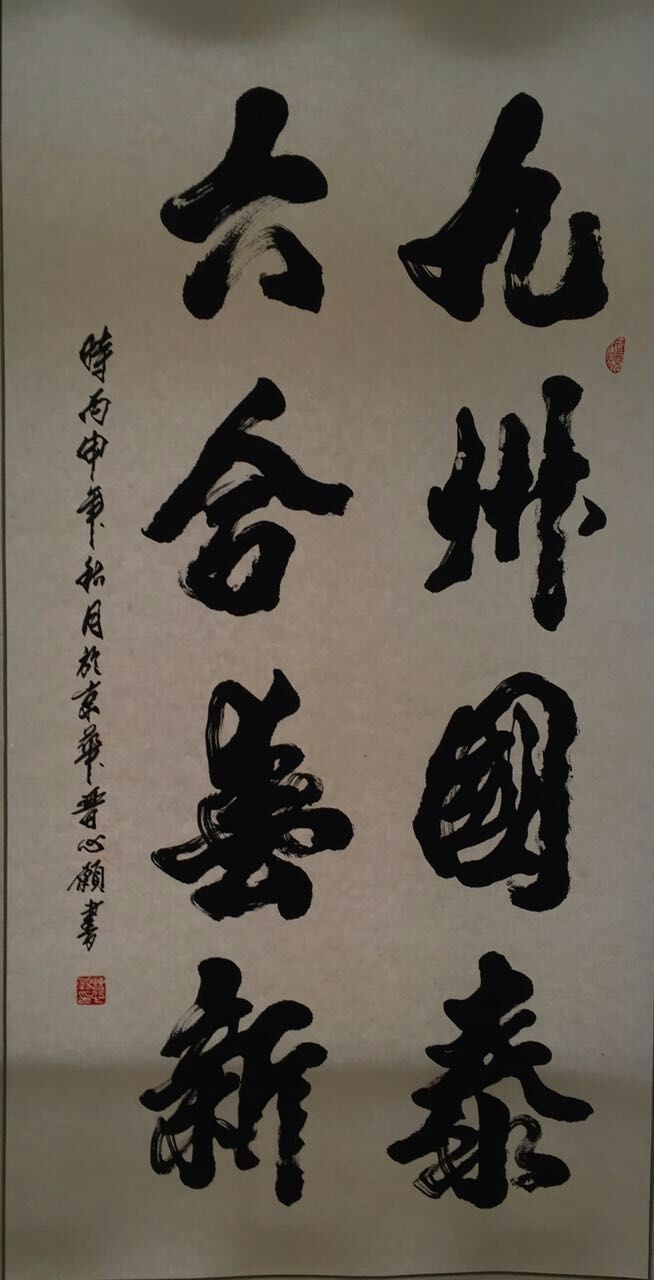 九州國泰
六合春新
時丙申年秋月於京華晉心願書